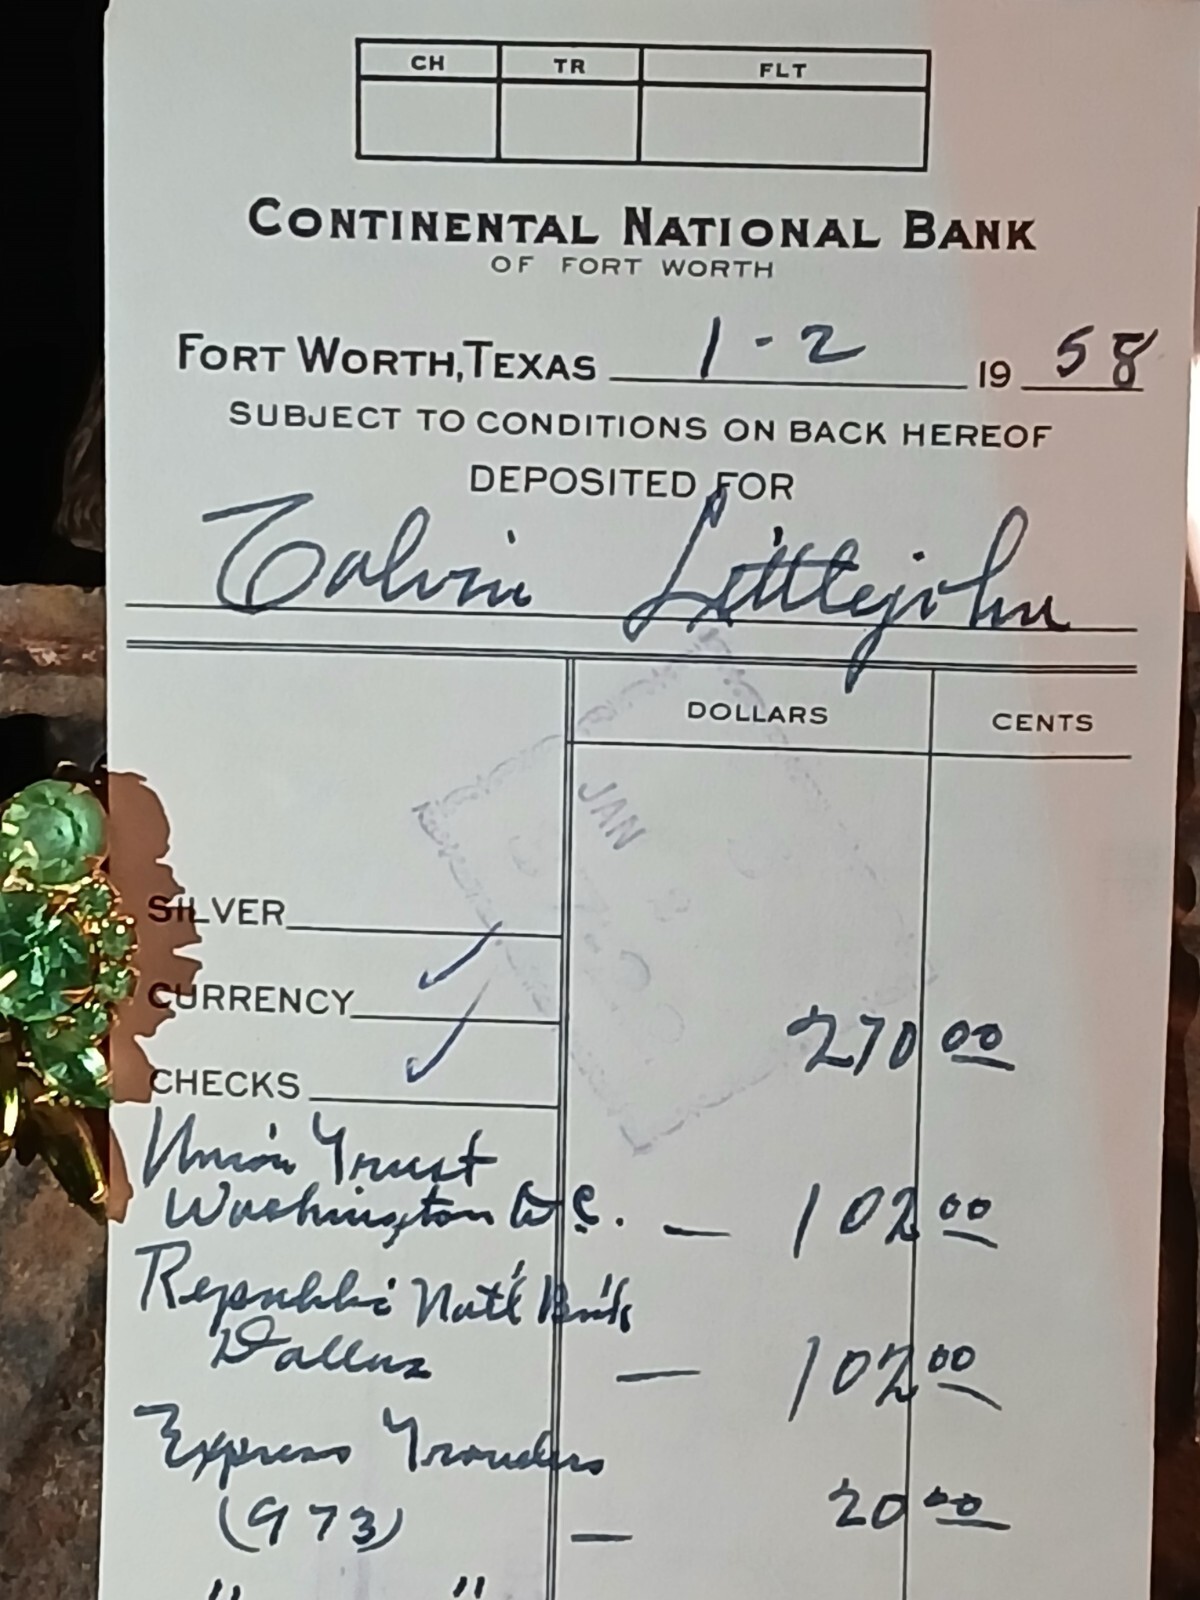 CH TR FLT
CONTINENTAL NATIONAL BANK
OF FORT WORTH
FORT WORTH, TEXAS 1-2 19 58
SUBJECT TO CONDITIONS ON BACK HEREOF
DEPOSITED FOR
Calvin Littlejohn
DOLLARS CENTS
JAN
SILVER
CURRENCY
270 00
CHECKS
Union Trust
Washington D.C. — 102 00
Republic Nat'l B'k
Dallas — 102 00
Express
(973) — 20 00
" "